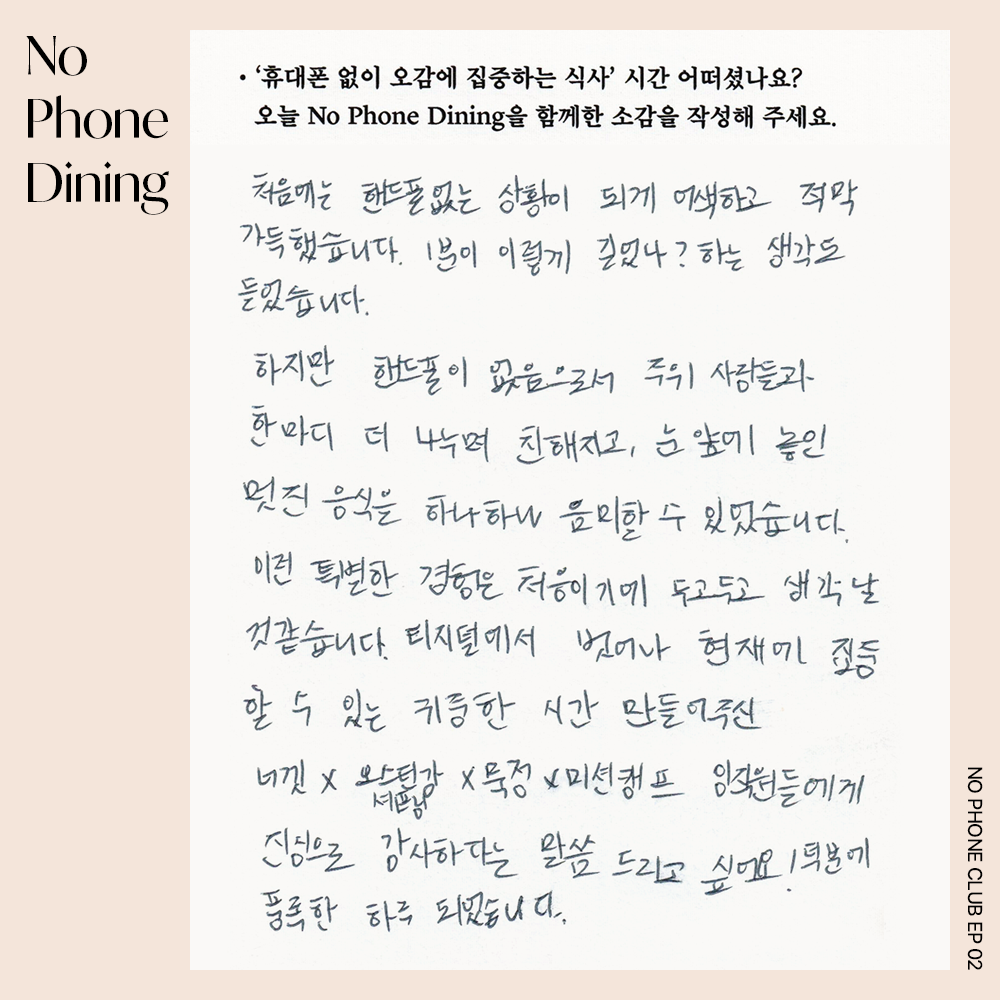 No
Phone
Dining
• ‘휴대폰 없이 오감에 집중하는 식사’ 시간 어떠셨나요?
오늘 No Phone Dining을 함께한 소감을 작성해 주세요.
처음에는 핸드폰없는 상황이 되게 어색하고 적막
가득했습니다. 1분이 이렇게 길었나? 하는 생각도
들었습니다.
하지만 핸드폰이 없음으로서 주위 사람들과
한마디 더 나누며 친해지고, 눈 앞에 놓인
멋진 음식을 하나하나 음미할 수 있었습니다.
이런 특별한 경험은 처음이기에 두고두고 생각날
것같습니다. 디지털에서 벗어나 현재에 집중
할 수 있는 귀중한 시간 만들어주신
너겟 x x묵정 x미션캠프 임직원들에게
셰프님
진심으로 감사하다는 말씀 드리고 싶어요! 덕분에
풍족한 하루 되었습니다.
NO PHONE CLUB EP 02